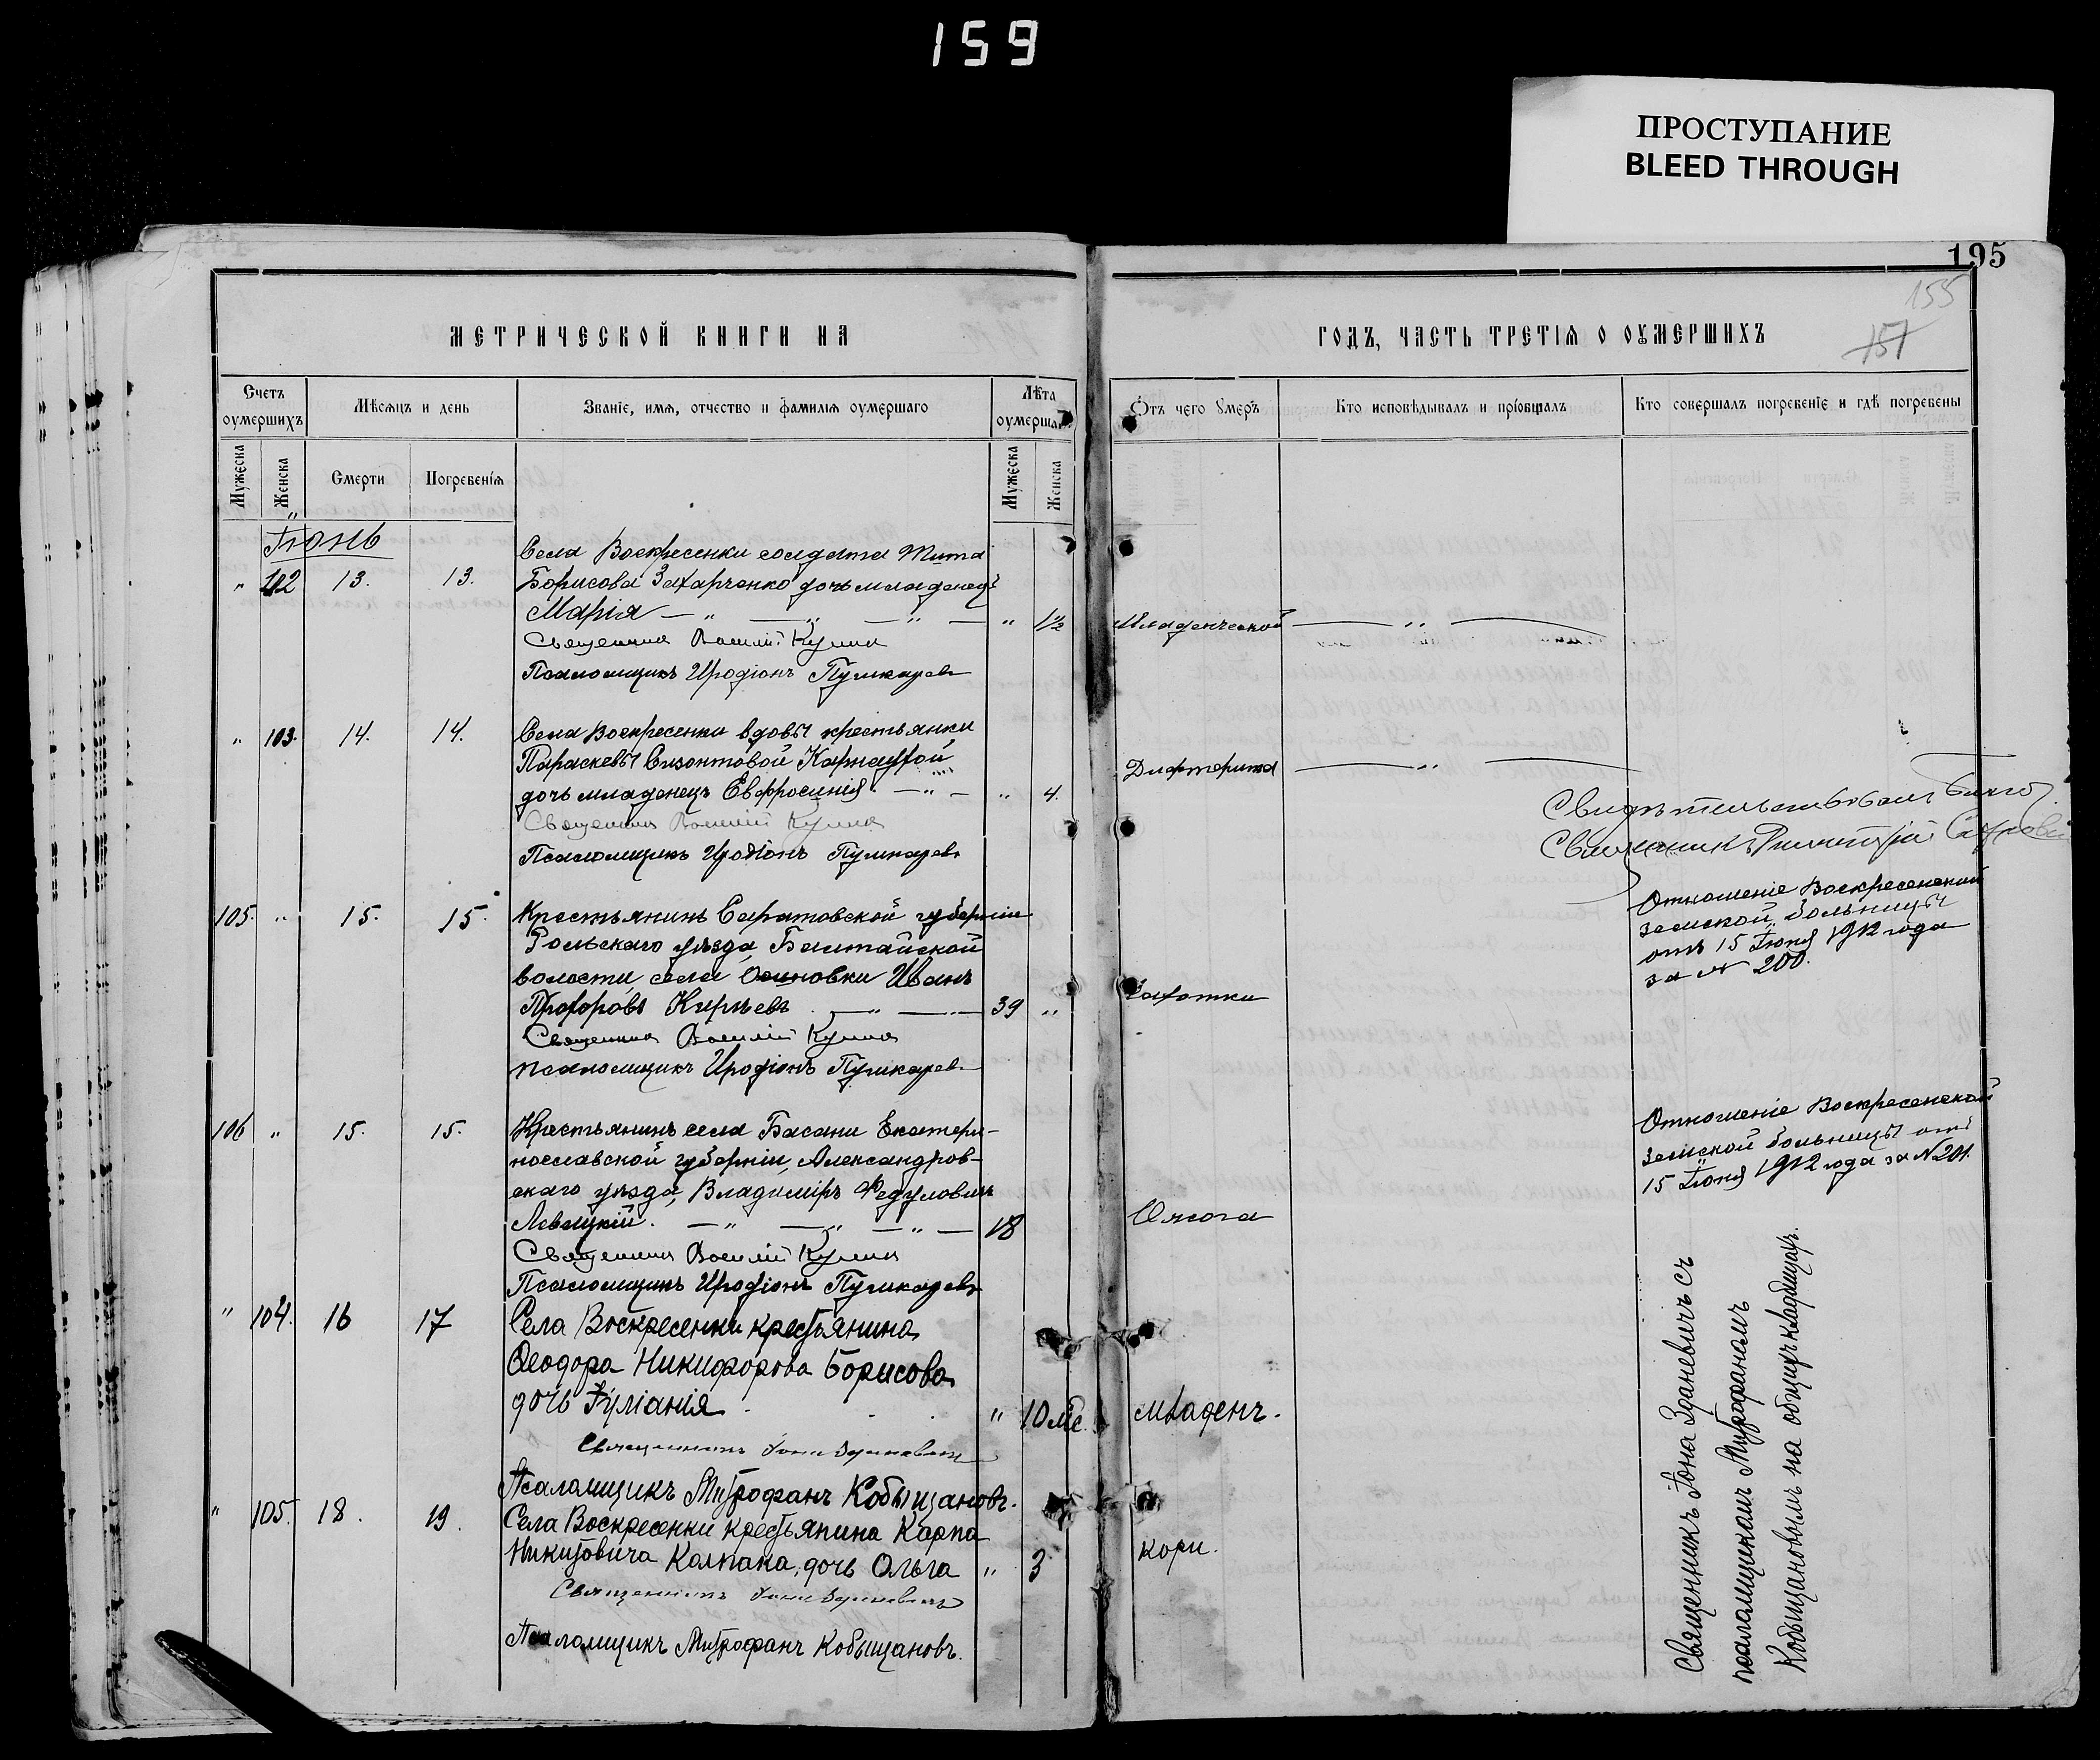 159
ПРОСТУПАНИЕ
BLEED THROUGH
195
155
151
МЕТРИЧЕСКОЙ КНИГИ НА
ГОДЪ, ЧАСТЬ ТРЕТІЯ О ОУМЕРШИХЪ
Счетъ оумершихъ
Мѣсяцъ и день
Званіе, имя, отчество и фамилія оумершаго
Лѣта оумершаго
Отъ чего умеръ
Кто исповѣдывалъ и пріобщалъ
Кто совершалъ погребеніе и гдѣ погребены
Мужеска
Женска
Смерти
Погребенія
Мужеска
Женска
Іюнь
Села Воскресенки солдата Тита
" 102 13. 13. Борисова Захарченко дочь младенецъ
Марія — " — " — " — " 1½ Младенческой — " —
Священникъ Василій
Псаломщикъ Иродіонъ Пушкаревъ
" 103. 14. 14. Села Воскресенки вдовы крестьянки
Параскевы Сизонтовой Карнауховой
дочь младенецъ Евфросинія. — " — " 4. Дифтерита — " —
Священникъ Василій
Псаломщикъ Иродіонъ Пушкаревъ
Священникъ
105. " 15. 15. Крестьянинъ Саратовской губерніи
уѣзда,
волости, села Осиновки Иванъ
Прохоровъ Кирѣевъ — " — 39 " Чахотки
Священникъ Василій
псаломщикъ Иродіонъ Пушкаревъ
Отношеніе Воскресенской
земской больницы
отъ 15 Іюня 1912 года
за № 200.
106 " 15. 15. Крестьянинъ села Басани Екатери-
нославской губерніи, Александров-
скаго уѣзда, Владиміръ Федуловичъ
Левицкій. — " — " — " — 18 Ожога
Священникъ Василій
Псаломщикъ Иродіонъ Пушкаревъ
Отношеніе Воскресенской
земской больницы отъ
15 Іюня 1912 года за № 201.
" 104. 16 17 Села Воскресенки крестьянина
Ѳеодора Никифорова Борисова
дочь Іуліанія " 10 мѣс. младенч.
Священникъ Іона Зданевичъ
Псаломщикъ Митрофанъ Кобыщановъ.
" 105. 18. 19. Села Воскресенки крестьянина Карпа
Никитовича Колпака, дочь Ольга " 3 кори.
Священникъ Іона Зданевичъ
Псаломщикъ Митрофанъ Кобыщановъ.
Священникъ Іона Зданевичъ съ
псаломщикомъ Митрофаномъ
Кобыщановымъ на общихъ кладбищахъ.